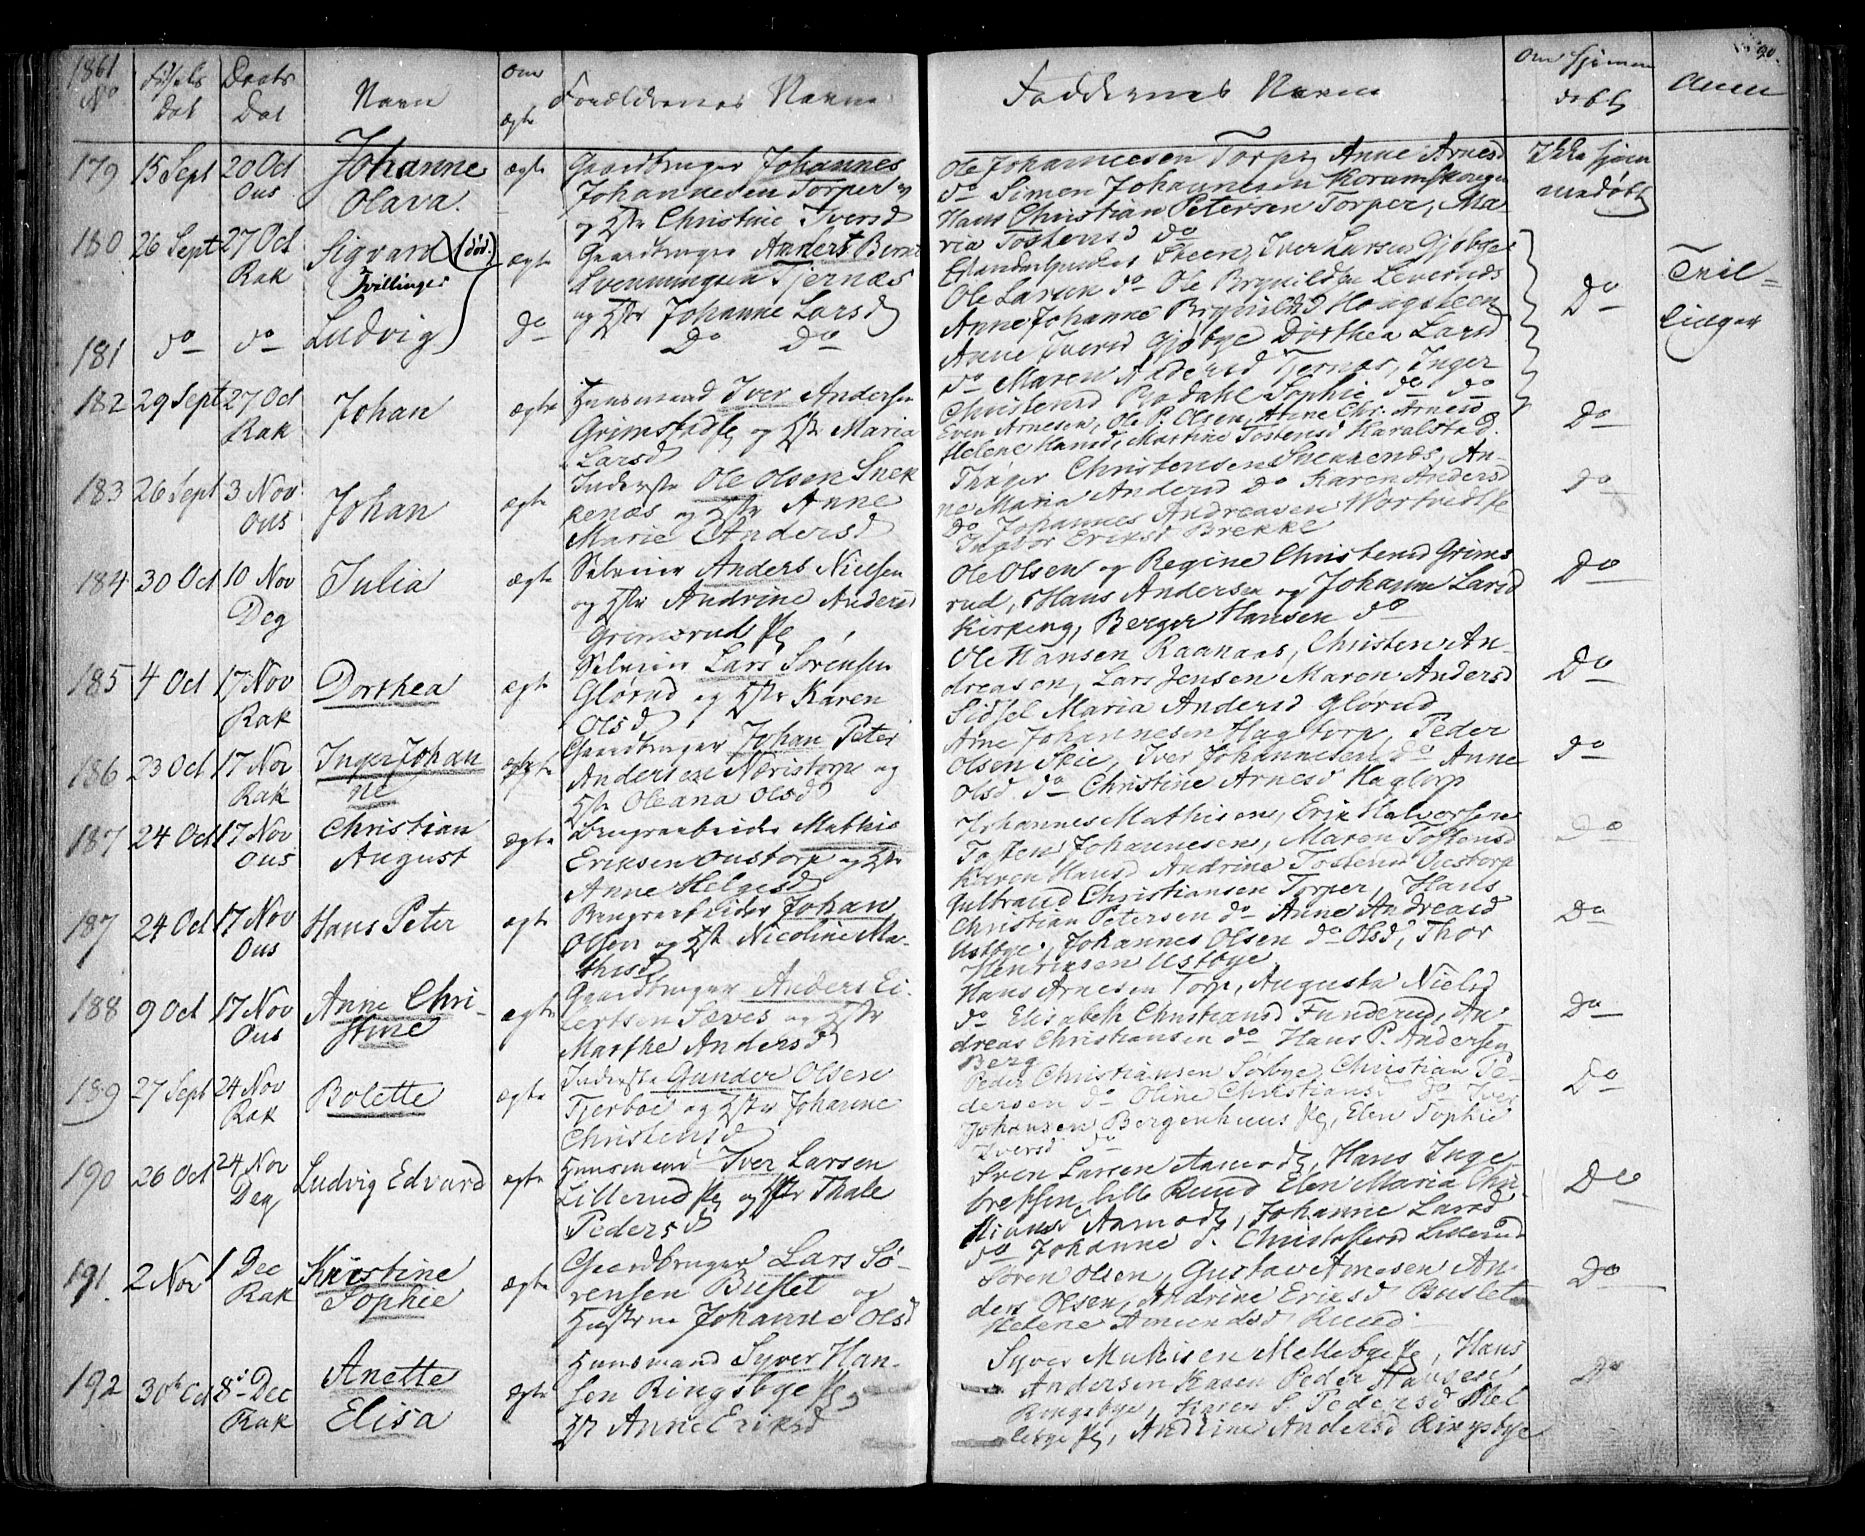 1861 90.
No Fødsels Dat Daabs Dat Navn Om ægte Forældrenes Navn Faddernes Navn Om hjemme døbt Anm
179 15 Sept 20 Oct Ous Johanne Olava. ægte Gaardbruger Johannes
Johannesen Torper
og Hstr Christine Iversd
Ole Johannesen Torper, Anne Arnesd
do Simon Johannesen
Hans Christian Petersen Torper, Ma
ria Tostensd do
Ikke hjem
medøbt
180 26 Sept 27 Oct Rak Sigvard (død) ægte Gaardbruger Anders Bernt
Tvillinger
Svenningsen Tjernæs
og Hstr Johanne Larsd
Skeen, Iver Larsen Gjøbye
Ole Larsen do Ole Brynildsen Levernæs
Anne Johanne Brynildsd Haugsteen
Do Tvil-
linger
181 do do Ludvig do Do Do
Anne Iversd Gjøbye Dorthea Larsd
do Maren Andersd Tjernæs, Inger
Christensd Bjødahl Sophie do do
182 29 Sept 27 Oct Rak Johan ægte Huusmand Iver Andersen
Grimstad og Hstr Maria
Larsd
Even Arnesen, Ole P. Olsen, Anne Chr. Arnesd
Helene Hansd, Martine Tostensd Karalstad.
Do
183 26 Sept 3 Nov Ous Johan ægte Inderste Ole Olsen Snek
kenæs og Hstr Anne
Marie Andersd
Thøger Christensen Snekkenæs, An-
ne Maria Andersd do Karen Andersd
do Johannes Andreasen
Eriksd Brekke
Do
184 30 Oct 10 Nov Deg Julia ægte Selveier Anders Nielsen
og Hstr Andrine Andersd
Grimsrud
Ole Olsen og Regine Christensd Grims
rud, Hans Andersen og Johanne Larsd
Kirkeng, Berger Hansen do
Do
185 4 Oct 17 Nov Rak Dorthea ægte Selveier Lars Sørensen
Glørud og Hstr Karen
Olsd
Ole Hansen Raanaas, Christen An-
dreasen, Lars Jensen Maren Andersd
Sidsel Maria Andersd Glørud
Do
186 23 Oct 17 Nov Rak Inger Johan
ne ægte Gaardbruger Johan Peter
Andersen Næristorp og
Hstr Oleana Olsd
Arne Johannesen Hagtorp, Peder
Olsen Skie, Iver Johannesen do Anne
Olsd do Christine Arnesd Hagtorp
Do
187 24 Oct 17 Nov Ous Christian
August ægte Brugsarbeider Mathis
Eriksen Oustorp og Hstr
Anne Helgesd
Johannes Mathisen, Erik Halvorsen
Tosten Johannesen, Maren Tostensd
Karen Hansd Andrine Tostensd Oustorp
Do
187 24 Oct 17 Nov Ous Hans Peter ægte Brugsarbeider Johan
Olsen og Hstr Nicoline Ma-
thisd
Gulbrand Christiansen Torper, Hans
Christian Petersen do Anne Andreasd
Ustbye, Johannes Olsen do Olsd, Thor
Henriksen Ustbye
Do
188 9 Oct 17 Nov Ous Anne Chri-
stine ægte Gaardbruger Anders Ei-
lertsen og Hstr
Marthe Andersd
Hans Arnesen Torp, Augusta Nielsd
do Elisabeth Christiansd Funderud, An
dreas Christiansen do Hans P. Andersen
Berg
Do
189 27 Sept 24 Nov Rak Bolette ægte Inderste Gunder Olsen
Tjerboe og Hstr Johanne
Christensd
Peder Christiansen Sørbye, Christian Pe-
dersen do Oline Christiansd do Iver
Johansen Bergenhuus, Elen Sophie
Iversd do
Do
190 26 Oct 24 Nov Deg Ludvig Edvard ægte Huusmand Iver Larsen
Lillerud og Hstr Thale
Pedersd
Sven Larsen Aamodt, Hans Inge
bretsen lille Ruud Elen Maria Chri-
stiansd Aamodt, Johanne Larsd
do Johanne d. Christoffersd Lillerud
Do
191. 2 Nov 1 Dec Rak Kristine
Sophie ægte Gaardbruger Lars Sø-
rensen Buslet og
Hustrue Johanne Olsd
Søren Olsen, Gustav Arnesen An-
ders Olsen, Andrine Eriksd Buslet
Helene Amundsd Ruud
Do
192 30te Oct 8 Dec Rak Anette
Elisa ægte Huusmand Syver Han-
sen Ringsbye
Hstr Anne Eriksd
Syver Mathisen Mellebye, Hans
Andersen Peder Hansen
Ringsbye, Karen S. Pedersd Mel
lebye, Andrine Andersd Ringsbye
Do